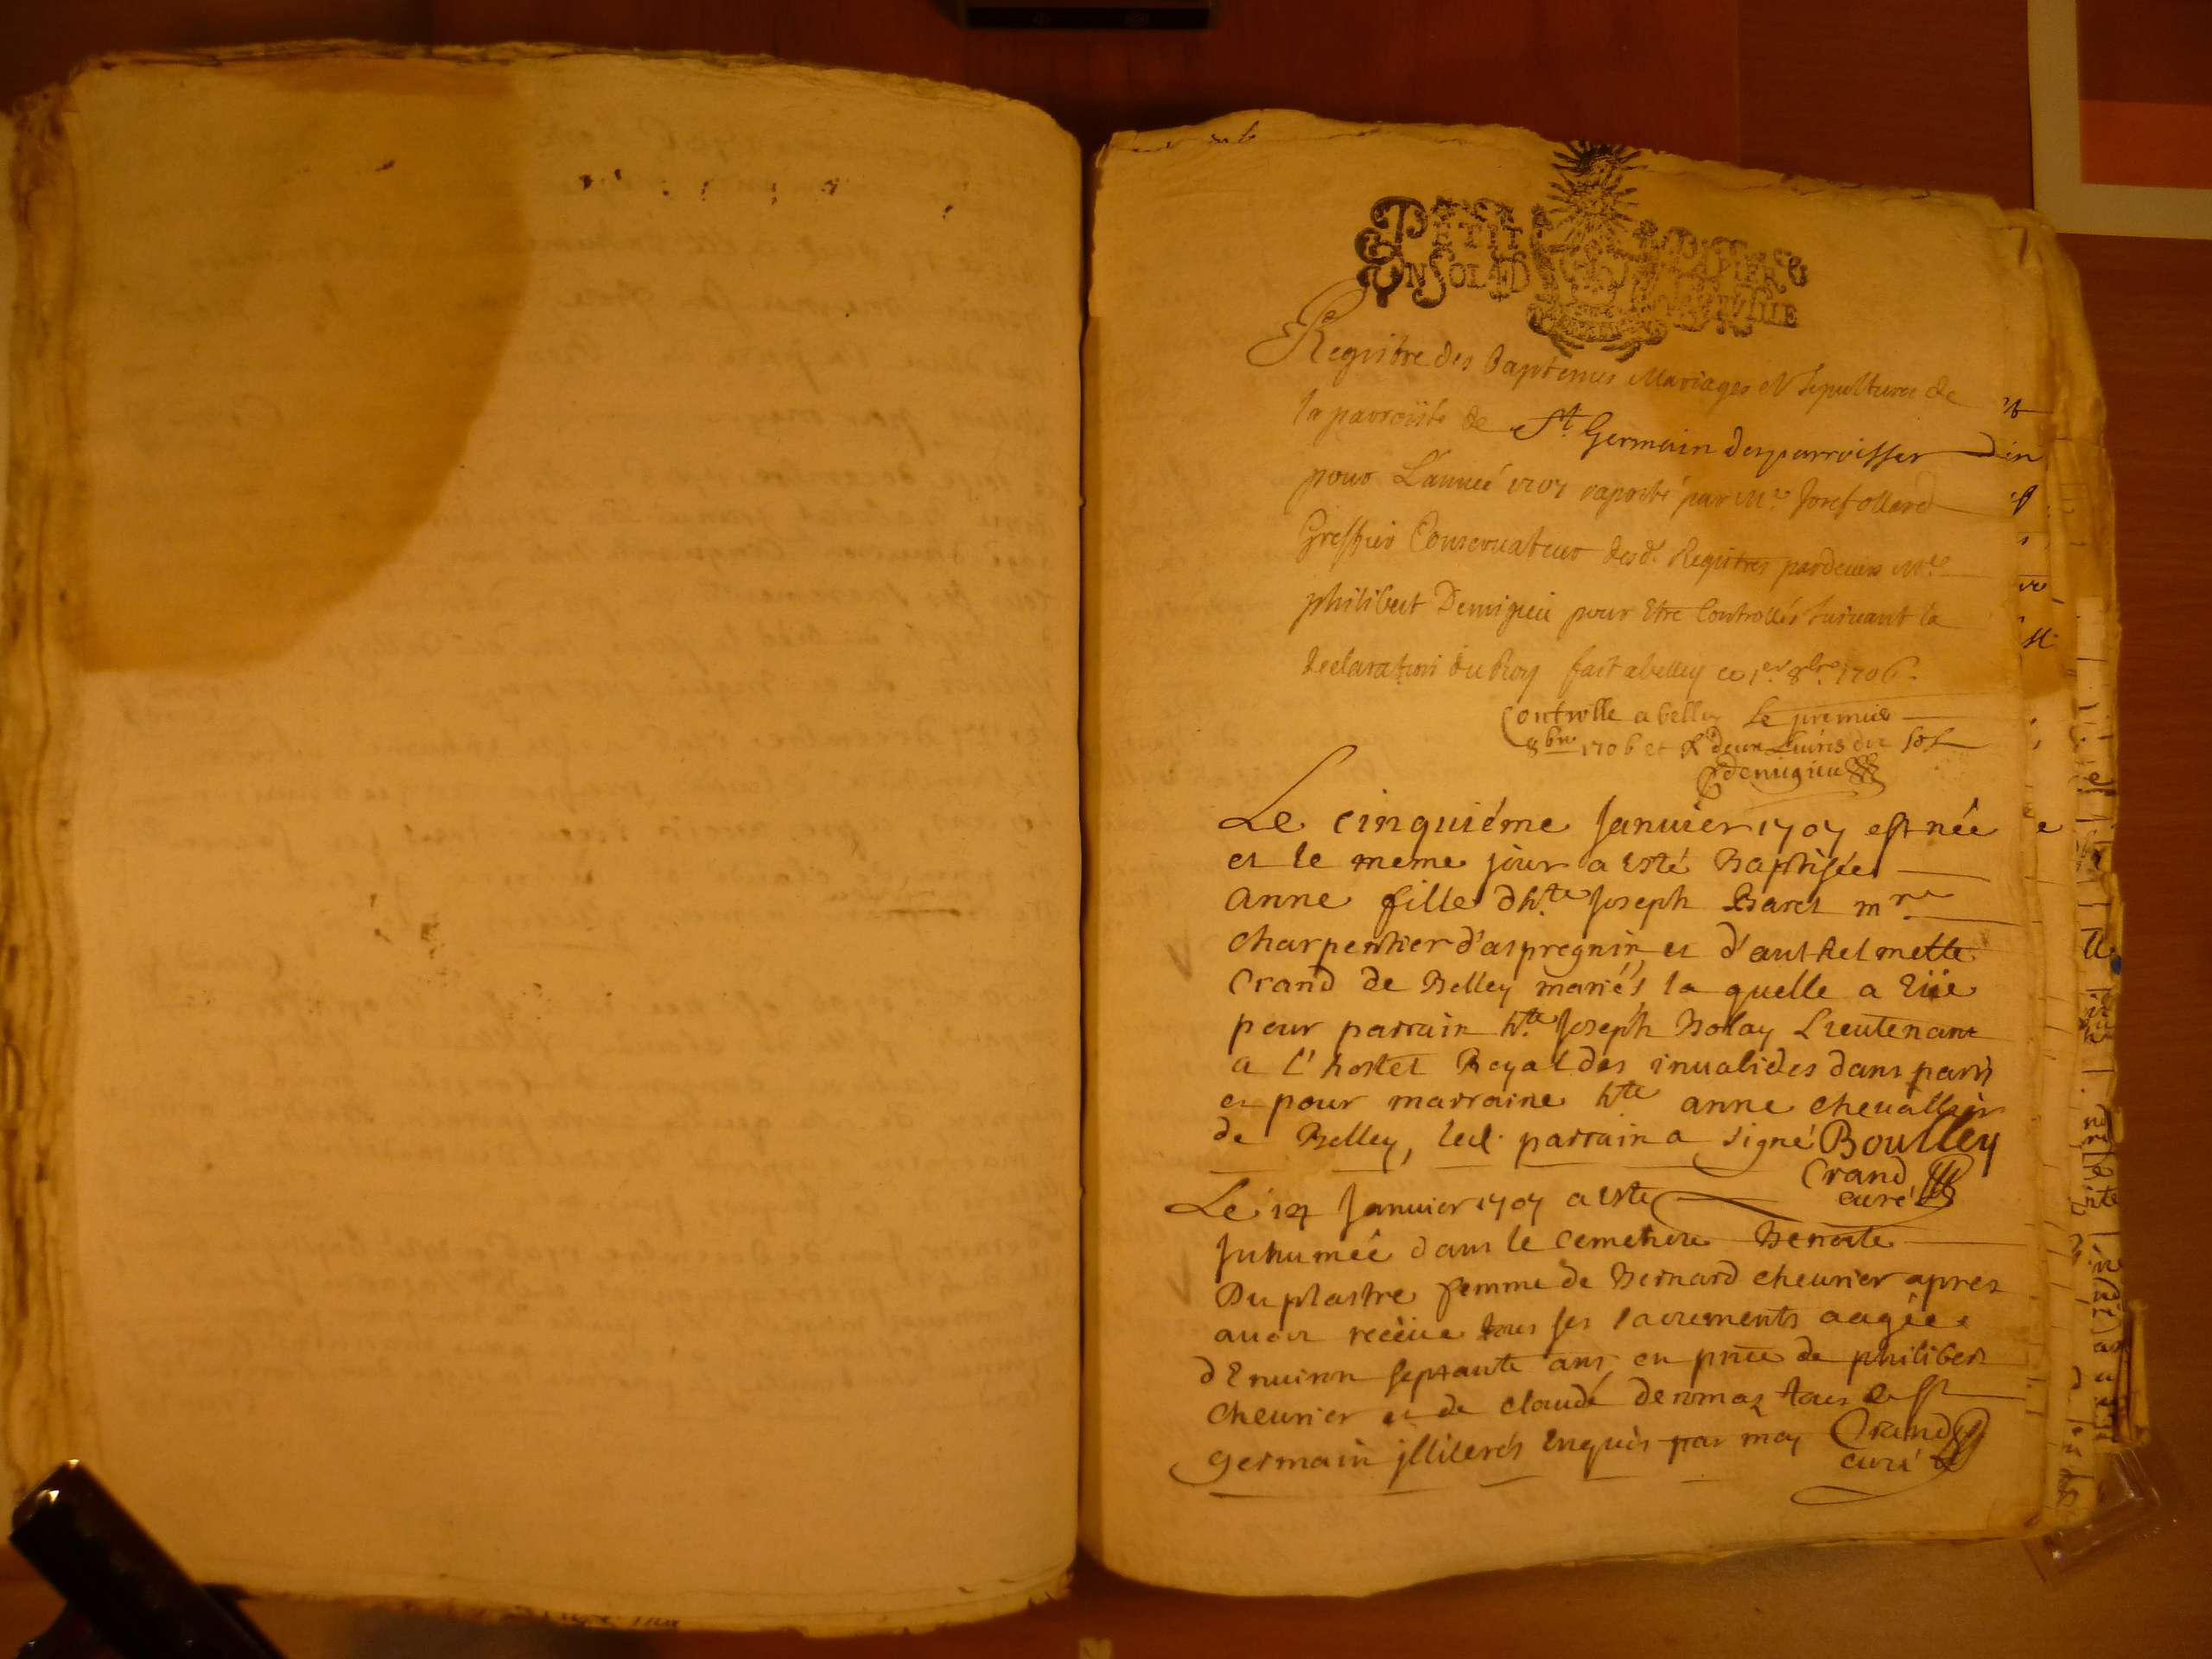 PETIT PAPIER
UN SOL 4D LA FEUILLE
Registre des Baptemes Mariages et Sepultures de
la parroisse de St. Germain desparroisses
pour L'année 1707 raporté par Me. Joref ollard
Greffier Conservateur desd. Registres pardevers Me
philibert Demigieu pour Etre Controllés suivant la
declaration du Roy fait a belley ce 1er. 8bre. 1706.
Controlle a belley Le premier
8bre 1706 et R deux Livres dix sols
Demigieu
Le cinquiéme Janvier 1707 est née
et le meme jour a esté Baptisée
Anne fille d'hte Joseph Baret mre
charpentier d'aspregnin et d'anthelmette
Crand de Belley mariés, la quelle a eüe
pour parrain hte Joseph Bolay Lieutenant
a l'hostel Royal des invalides dans paris
et pour marraine hte anne chevallier
de Belley, led. parrain a signé Boulley
Crand
curé
Le 14 Janvier 1707 a esté
Inhumée dans le cemetiere Benoite
Duplastre femme de Bernard chevrier apres
avoir recëue tous ses sacrements aagée
d'Environ septante ans, en pnce de philibert
chevrier et de claude deromaz tous de St
germain jlliterés enquis par moy Crand
curé